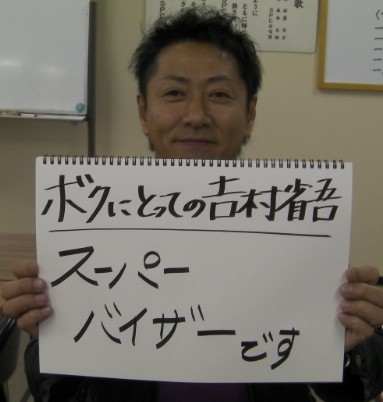 ボクにとっての吉村省吾
スーパー
バイザーです